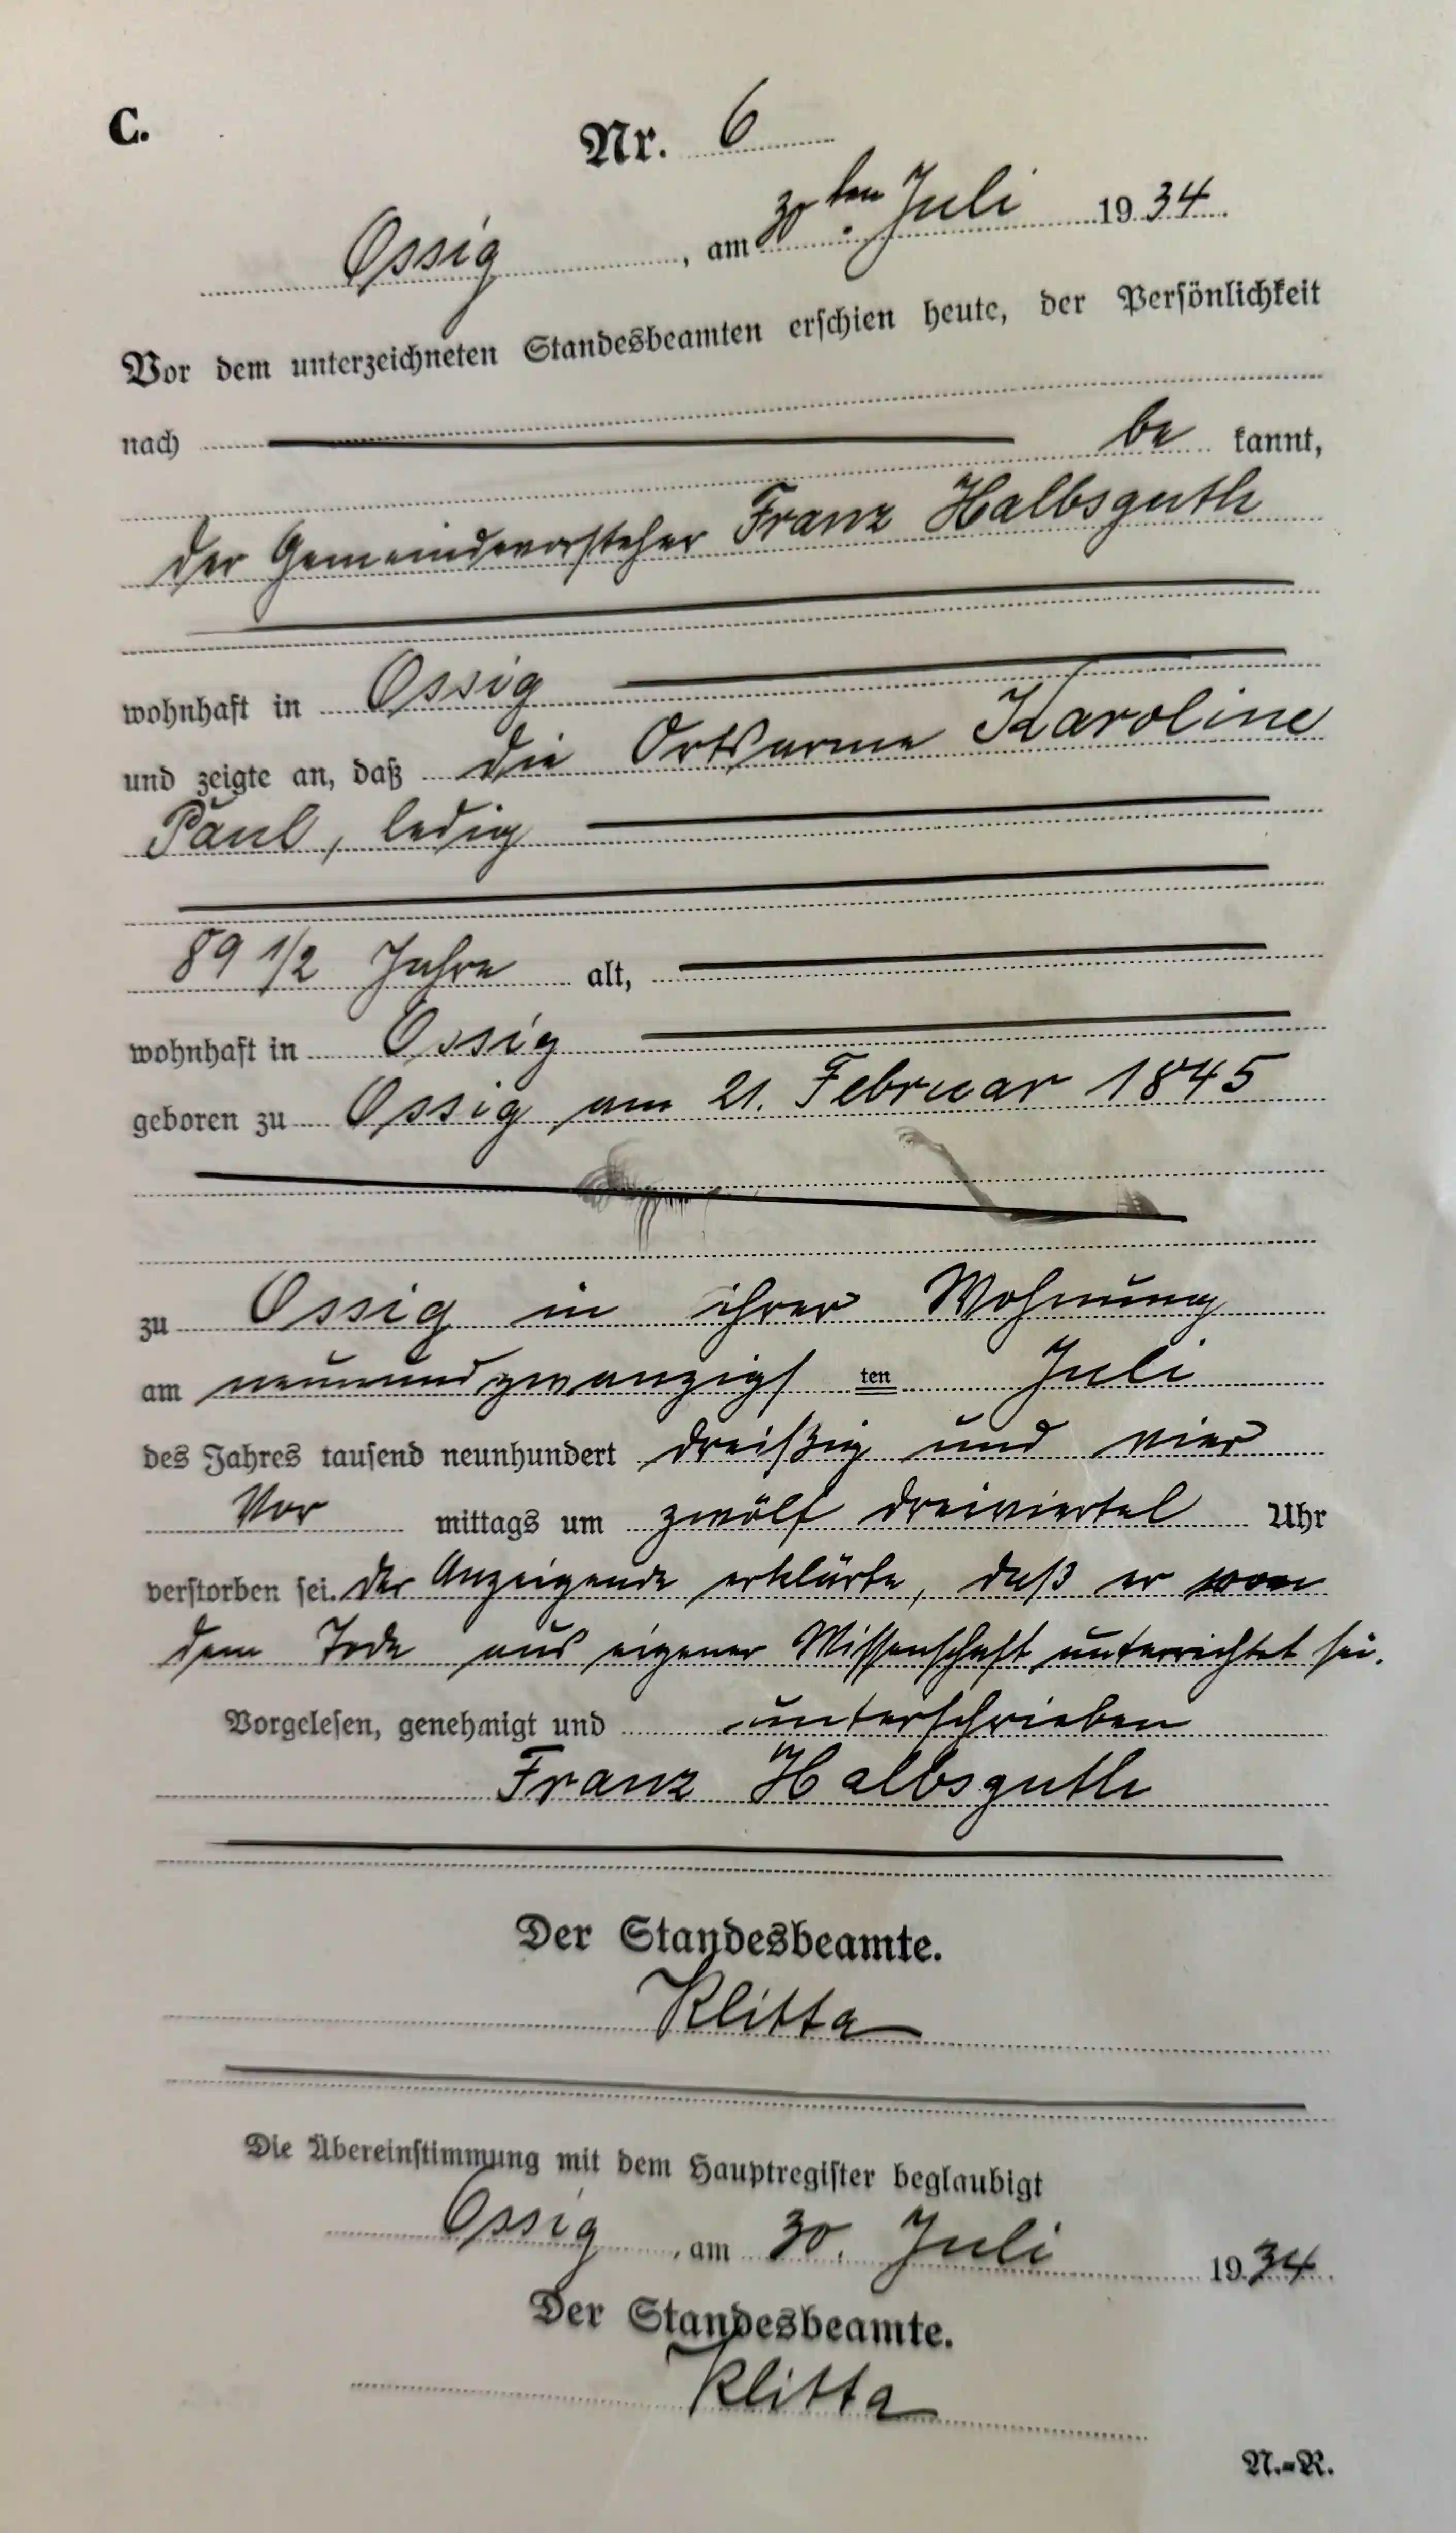 C.
Nr. 6
Ossig, am 30ten Juli 1934.
Vor dem unterzeichneten Standesbeamten erschien heute, der Persönlichkeit
nach be kannt,
der Gemeindevorsteher Franz Halbsguth
wohnhaft in Ossig
und zeigte an, daß die Ortsarme Karoline
Paul, ledig
89 1/2 Jahre alt,
wohnhaft in Ossig
geboren zu Ossig am 21. Februar 1845
zu Ossig in ihrer Wohnung
am neunundzwanzigs ten Juli
des Jahres tausend neunhundert dreißig und vier
Vor mittags um zwölf dreiviertel Uhr
verstorben sei. Der Anzeigende erklärte, daß er von
dem Tode aus eigener Wissenschaft unterrichtet sei.
Vorgelesen, genehmigt und unterschrieben
Franz Halbsguth
Der Standesbeamte.
Klitta
Die Übereinstimmung mit dem Hauptregister beglaubigt
Ossig, am 30. Juli 1934.
Der Standesbeamte.
Klitta
N.-R.